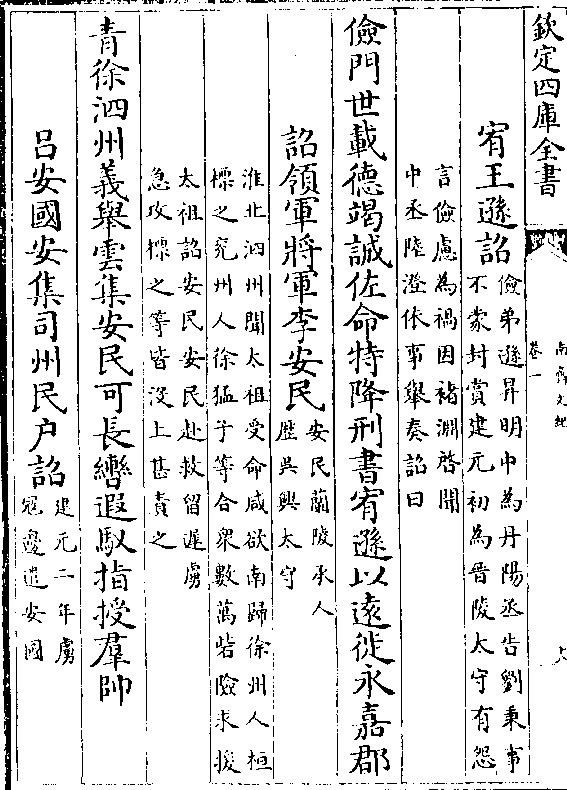 欽定四庫全書
南齊文紀
卷一
宥王遜詔
儉弟遜昇明中為丹陽丞告劉秉事
不蒙封賞建元初為晉陵太守有怨
言儉慮為禍因褚淵啓聞
中丞陸澄依事舉奏詔曰
儉門世載德竭誠佐命特降刑書宥遜以遠徙永嘉郡
詔領軍將軍李安民
安民蘭陵承人
歷吳興太守
淮北泗州聞太祖受命咸欲南歸徐州人桓
標之兖州人徐猛子等合衆數萬砦險求援
太祖詔安民安民赴救留遲虜
急攻標之等皆沒上甚責之
青徐泗州義舉雲集安民可長轡遐馭指授羣帥
吕安國安集司州民户詔
建元二年虜
宼邊遣安國